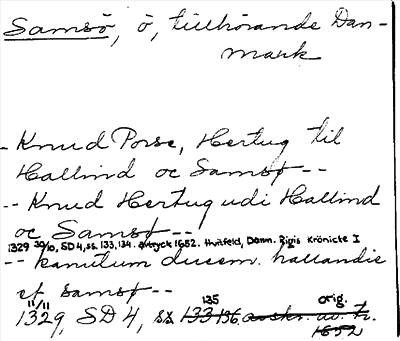 Samsö, ö, tillhörande Dan-
mark
- Knud Porse, Hertug til
Hallind oc Samsø --
-- Knud Hertug udi Hallind
oc Samsø --
1329 30/10, SD 4, ss. 133, 134. Avtryck 1652. Hvitfeld, Danm. Rigis Krönicke I
-- kanutum ducem hallandie
et samsø --
11/11 135 orig.
1329, SD 4, ss. 133 136 avskr. av tr.
1652